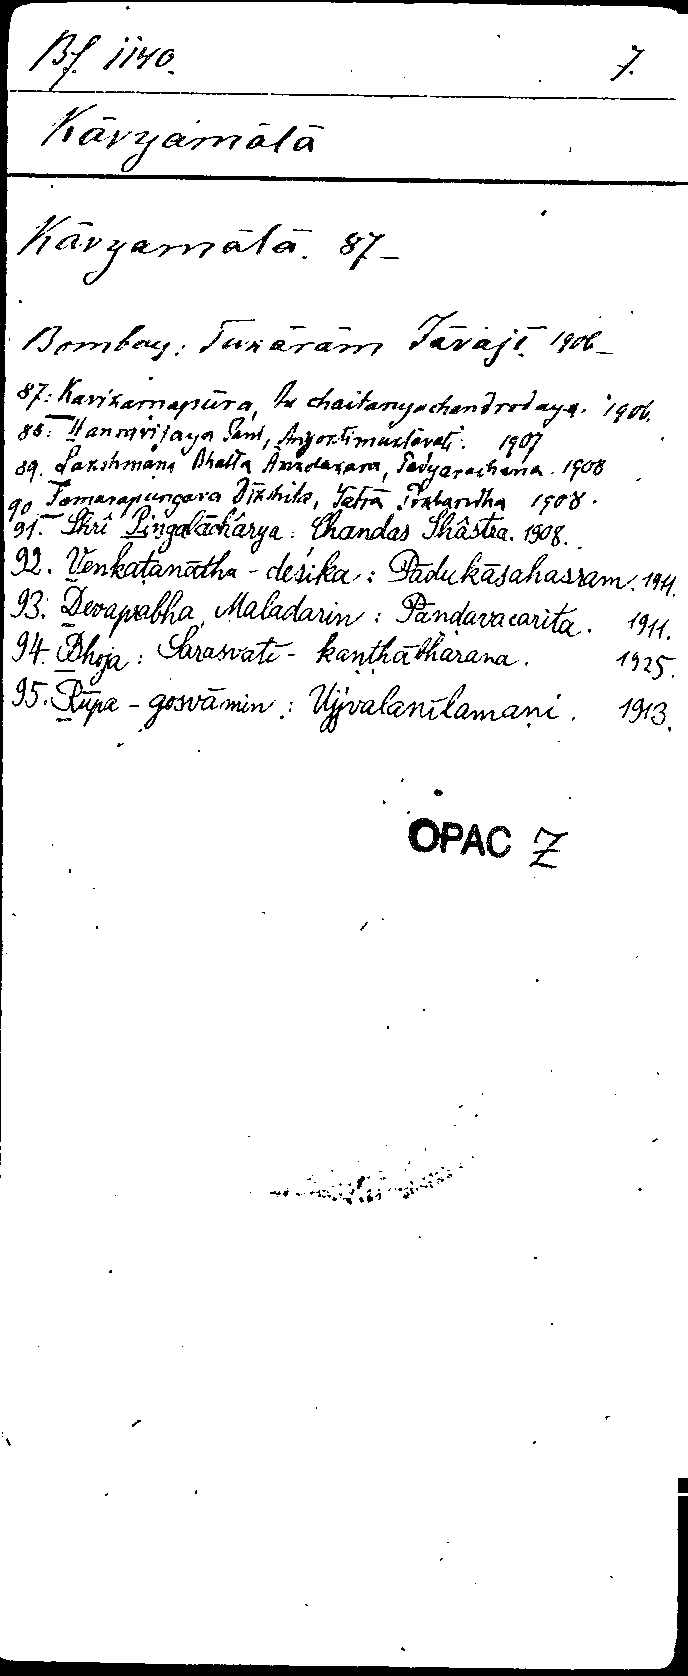 Bf. 1140. 7.
Kāvyamālā
Kāvyamālā. 87-
Bombay: Tukārām Jāvajī. 1906-
87: Kavikarnapūra, chaitanyachandrodaya. 1906.
88: Hansavijaya Gani, Anyoktimuktāvatī. 1907
89. Lakshmana Bhatta Ankolakara, Padyarachana. 1908
90 Dīkshita, 1908.
91. Shrî Pingalāchârya: Chandas Shâstra. 1908.
92. Venkatanātha-deśika: Pādukāsahasram. 1911.
93. Devaprabha Maladarin: Pāndavacarita. 1911.
94. Bhoja: Sarasvatī-kaṇṭhābharaṇa. 1925.
95. Rūpa-gosvāmin: Ujjvalanīlamaṇi. 1913.
OPAC Z